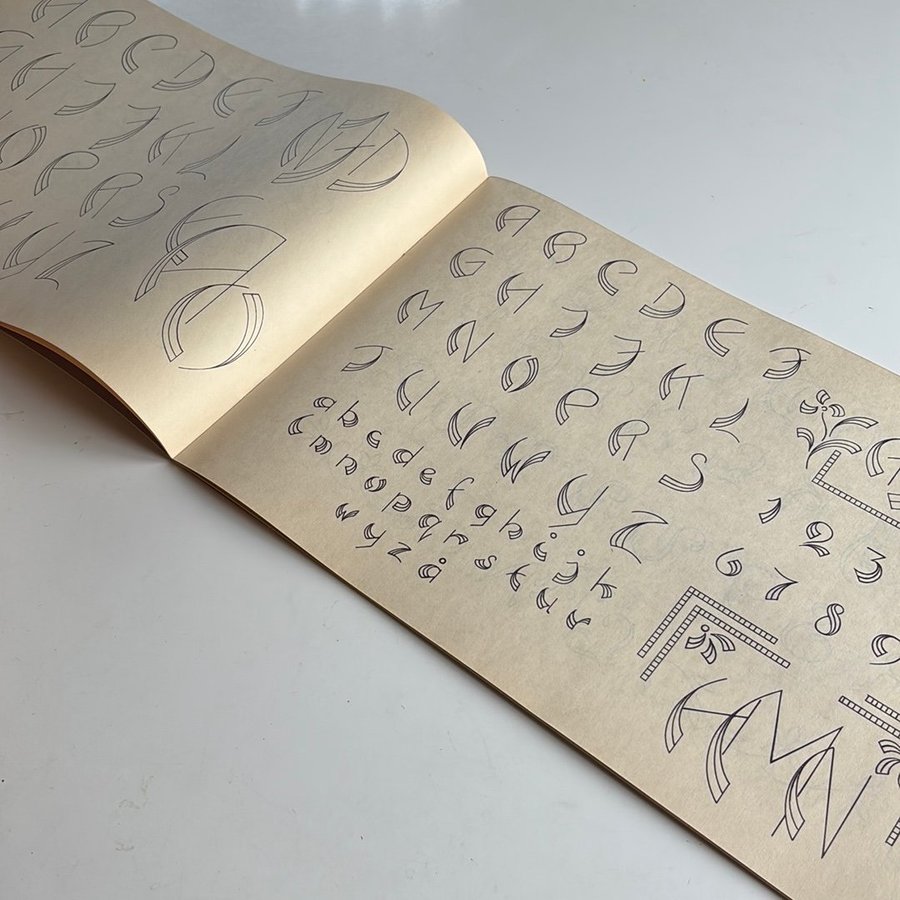 A B C D E F
H I J K L
O P R S
Y Z
A B C D E F
G H I J K L
M N O P R S
T U V W Y Z
a b c d e f g h i j k
l m n o p q r s t u v
w y z å
1 2 3
6 7 8 9
H M N